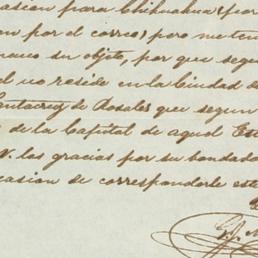 asion para Chihuahua (por
en por el correo) pero me ten
su objeto, por que segu
el no reside en la Ciudad de
Santacruz de Rosales que segun
de la Capital de aquel Est
V. las gracias por su bondado
casion de corresponderle este